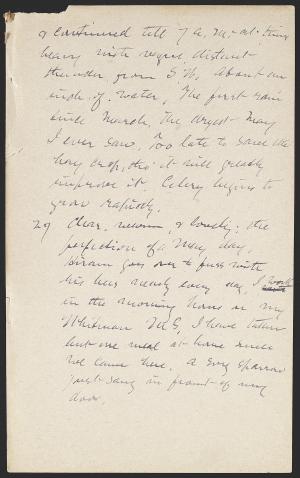 & continued till 7 a.m. at times
heavy with vague, distant
thunder, from S.W. About an
inch of water, The first rain
since March. The dryest May
I ever saw. Too late to save the
hay crop, tho' it will greatly
improve it. Celery begins to
grow rapidly.
29 Clear, warm, & lovely; the
perfection of a May day,
Hiram goes over to fuss with
his bees nearly every day, I work
in the morning hours on my
Whitman MS, I have taken
but one meal at home since
we came here. A Song Sparrow
just sang in front of my
door.